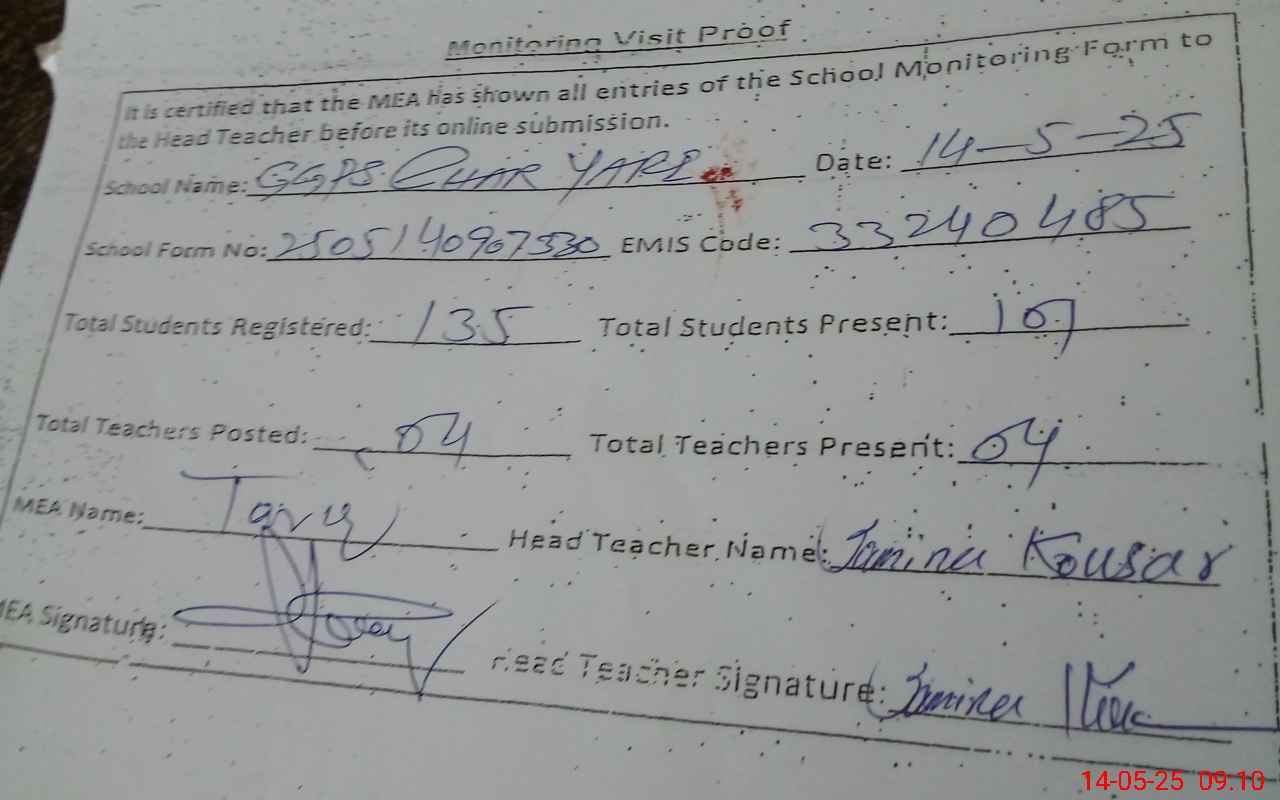 Monitoring Visit Proof
It is certified that the MEA has shown all entries of the School Monitoring Form to
the Head Teacher before its online submission.
School Name: GGPS. CHAR YARI Date: 14-5-25
School Form No: 2505140907330 EMIS Code: 33240485
Total Students Registered: 135 Total Students Present: 107
Total Teachers Posted: 04 Total Teachers Present: 04
MEA Name: Head Teacher Name: Kousar
MEA Signature:
Head Teacher Signature:
14-05-25 09.10